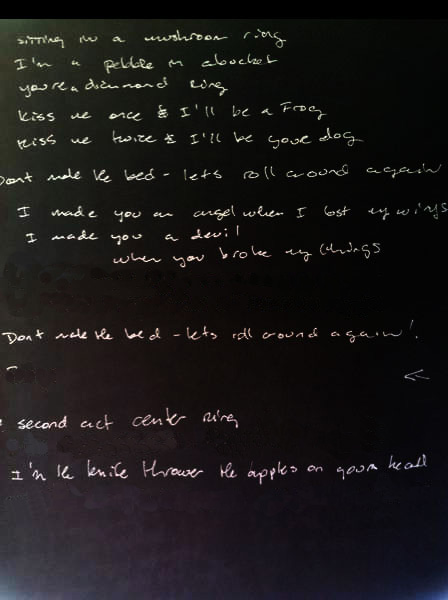 sitting in a mushroom ring
I'm a pebble in a bucket
you're a diamond ring
Kiss me once & I'll be a Frog
Kiss me twice & I'll be your dog
Dont make the bed - lets roll around again
I made you an angel when I lost my wings
I made you a devil
when you broke my things
Dont make the bed - lets roll around again!
second act center ring
I'm the knife thrower the apples on your head